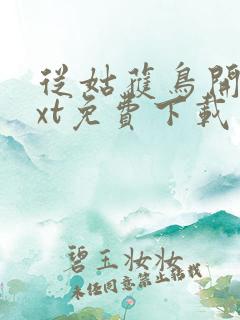 從姑獲鳥開
xt免費下載
碧玉妝妝
未经同意禁止搭載